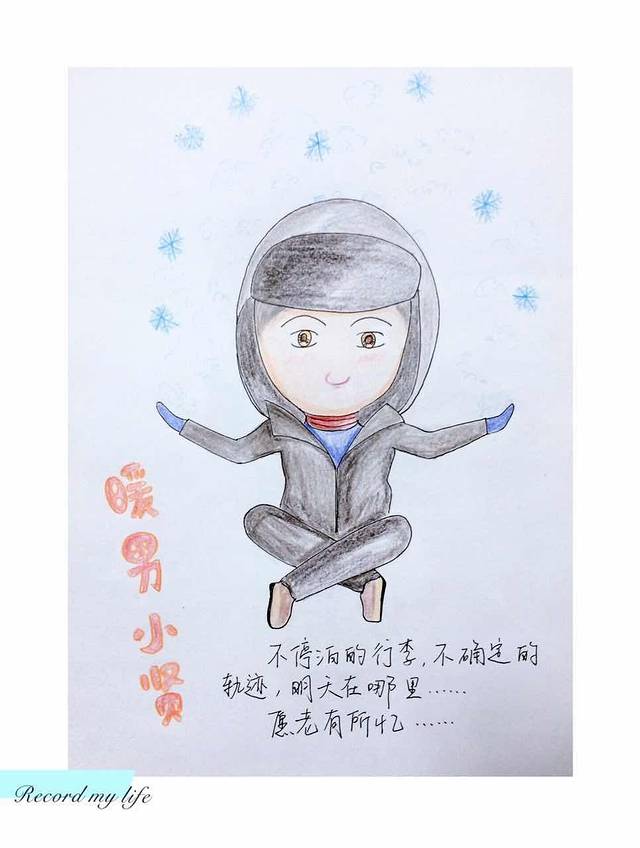 暖男小贤
不停泊的行李,不确定的
轨迹,明天在哪里……
愿老有所忆……
Record my life